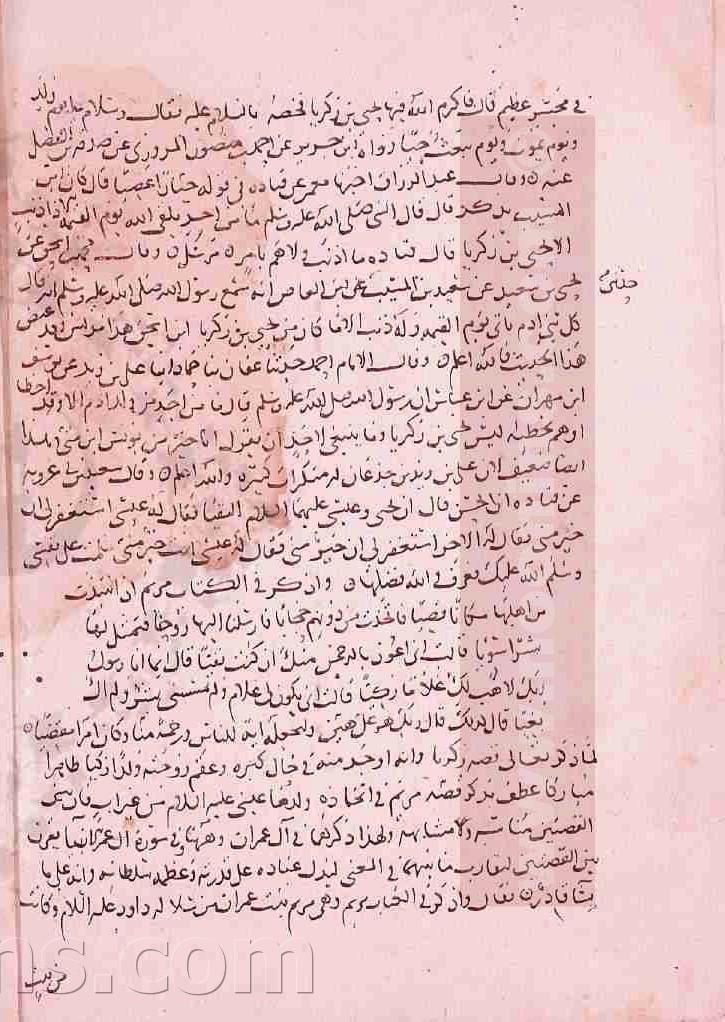 في محشر عظيم قال فاكرم الله فيها يحيى بن زكريا فخصه بالسلام عليه فقال وسلام عليه يوم ولد
ويوم يموت ويوم يبعث حيا رواه ابن جرير عن احمد بن منصور المروزي عن صدقة بن الفضل
عنه وقال عبد الرزاق اخبرنا معمر عن قتادة في قوله جبارا عصيا قال كان ابن
المسيب يذكر قال قال النبي صلى الله عليه وسلم ما من احد يلقى الله يوم القيمة الا ذا ذنب
الا يحيى بن زكريا قال قتادة ما اذنب ولا هم بامرة مرسل وقال محمد بن اسحق عن
يحيى بن سعيد عن سعيد بن المسيب حدثني ابن العاص انه سمع رسول الله صلى الله عليه وسلم انه قال
كل بني ادم ياتي يوم القيمة وله ذنب الا ما كان من يحيى بن زكريا ابن اسحق هذا مدلس وقد عنعن
هذا الحديث فالله اعلم وقال الامام احمد حدثنا عفان ثنا حماد انبا علي بن زيد عن يوسف
ابن مهران عن ابن عباس ان رسول الله صلى الله عليه وسلم قال ما من احد من ولد ادم الا وقد اخطا
او هم بخطية ليس يحيى بن زكريا وما ينبغي لاحد ان يقول انا خير من يونس ابن متى وهذا
ايضا ضعيف لان علي بن زيد بن جدعان له منكرات كثيرة والله اعلم وقال سعيد بن ابي عروبة
عن قتادة ان الحسن قال ان يحيى وعيسى عليهما السلام التقيا فقال له عيسى استغفر لي انت
خير مني فقال له الاخر استغفر لي انت خير مني فقال له عيسى انت خير مني سلمت على نفسي
وسلم الله عليك فعرف والله فضلهما واذكر في الكتاب مريم اذ انتبذت
من اهلها مكانا قصيا فاتخذت من دونهم حجابا فارسلنا اليها روحنا فتمثل لها
بشرا سويا قالت اني اعوذ بالرحمن منك ان كنت تقيا قال انما انا رسول
ربك لاهب لك غلاما زكيا قالت انى يكون لي غلام ولم يمسسني بشر ولم اك
بغيا قال كذلك قال ربك هو علي هين ولنجعله اية للناس ورحمة منا وكان امرا مقضيا
لما ذكر تعالى قصة زكريا وانه اوجد منه في حال كبره وعقم زوجته ولدا زكيا طاهرا
مباركا عطف بذكر قصة مريم في ايجاده ولدها عيسى عليه السلام من غير اب فان بين
القصتين مناسبة ومشابهة ولهذا ذكرهما في آل عمران وههنا وفي سورة الانبيا يقرن
بين القصتين لتقارب ما بينهما في المعنى ليدل عباده على قدرته وعظمة سلطانه وانه على ما
يشا قادر فقال واذكر في الكتاب مريم وهي مريم بنت عمران من سلالة داود عليه السلام وكانت
من بيت
حدثني